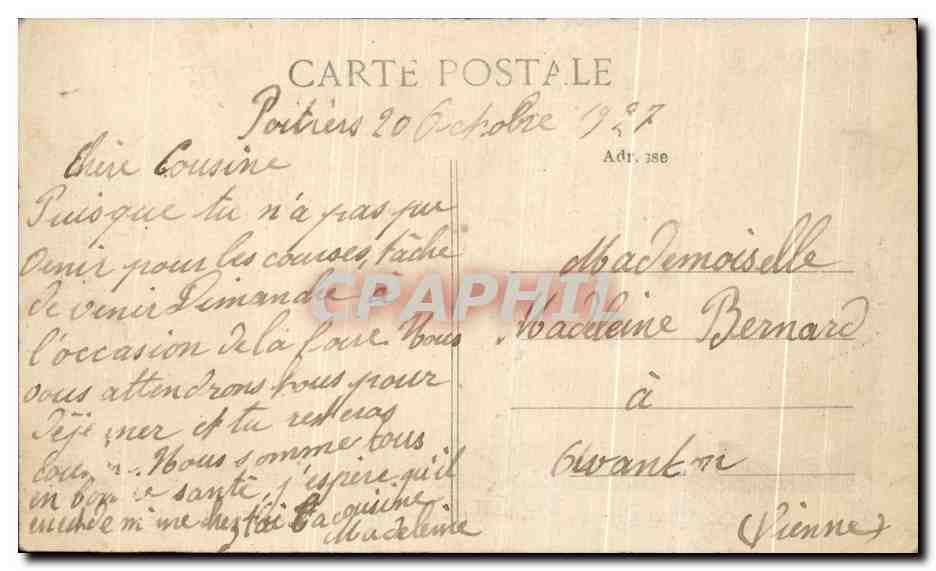 CARTE POSTALE
Poitiers 20 Octobre 1927
Adresse
Chère Cousine
Puisque tu n'a pas pu
venir pour les courses, tâche
de venir Dimanche à
l'occasion de la foire. Nous
vous attendrons tous pour
déjeuner et tu resteras
Nous somme tous
en bonne santé, j'espère qu'il
en est de même chez toi Ta cousine
Madeleine
Mademoiselle
Madeleine Bernard
à
Avanton
(Vienne)
CPAPHIL